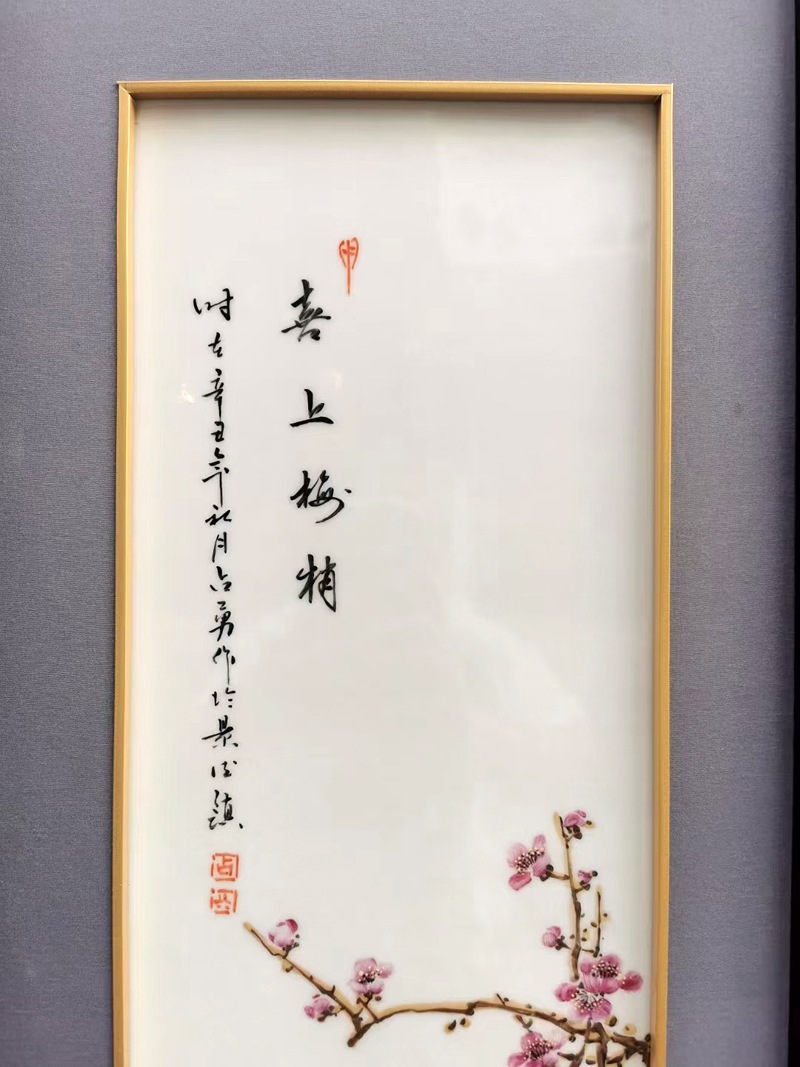 喜上梅梢
时在辛丑年秋月占勇作於景德镇